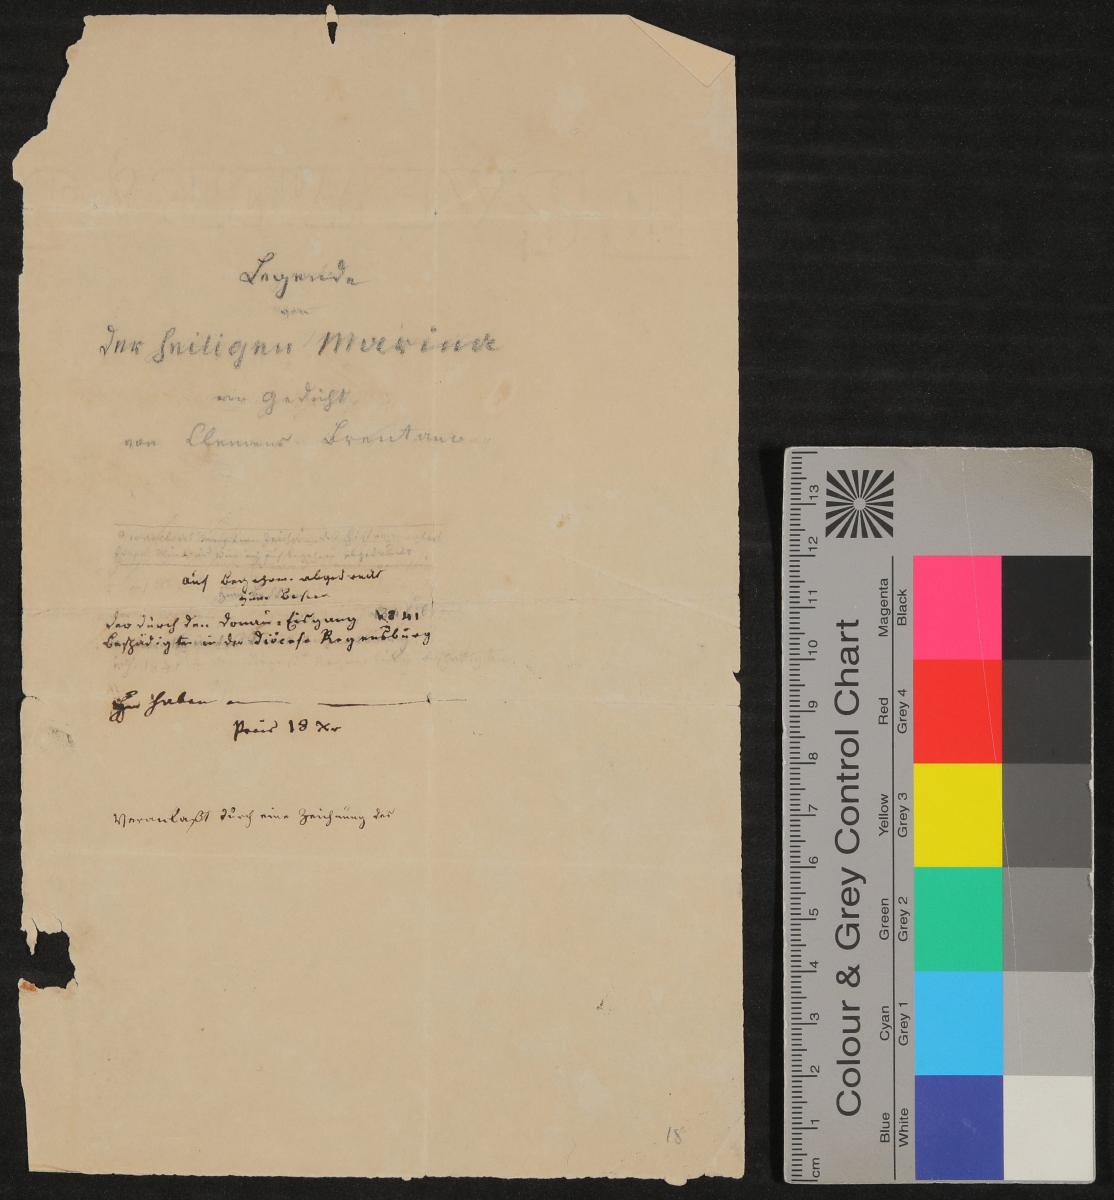 Legende
von
der heiligen Marina
ein Gedicht
von Clemens Brentano
auf Begehren abgedruckt
zum Besten
der durch den Donau-Eisgang 1841
Beschädigten in der Diöcese Regensburg
Zu haben
Preis 18 Xr
Veranlaßt durch eine Zeichnung des
18
Colour & Grey Control Chart
Blue Cyan Green Yellow Red Magenta
White Grey 1 Grey 2 Grey 3 Grey 4 Black
cm 1 2 3 4 5 6 7 8 9 10 11 12 13